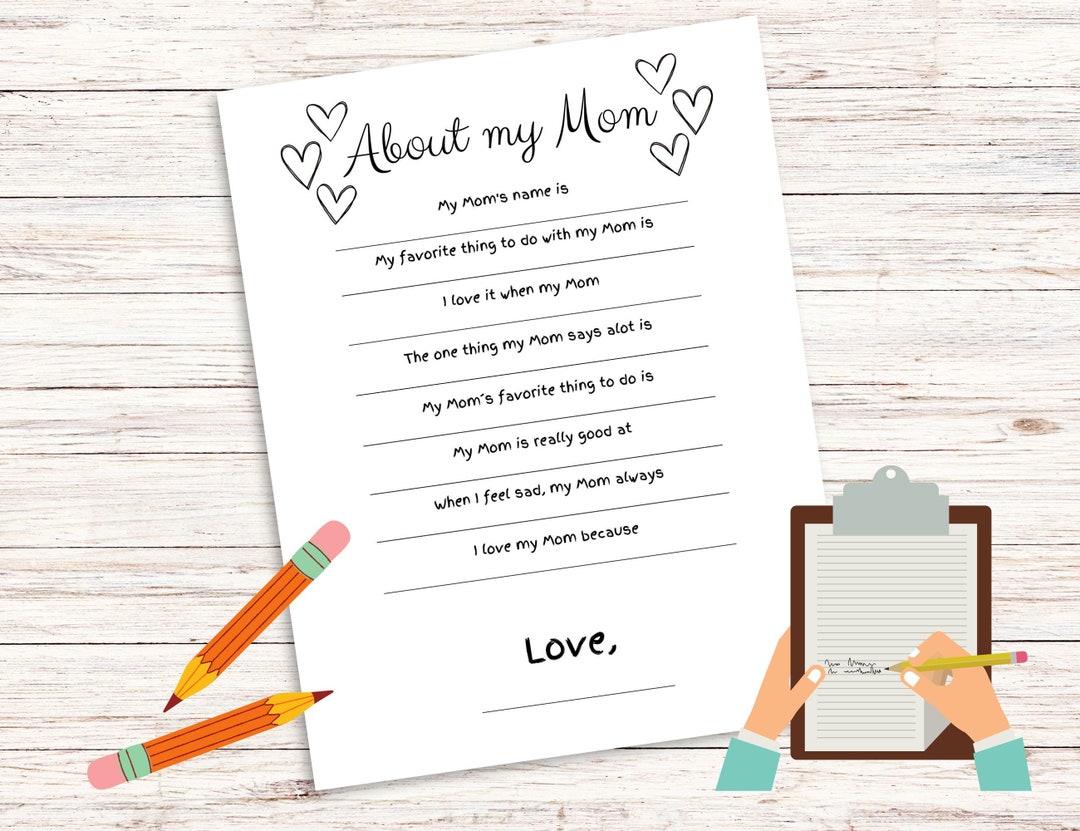 About my Mom
My Mom's name is
My favorite thing to do with my Mom is
I love it when my Mom
The one thing my Mom says alot is
My Mom´s favorite thing to do is
My Mom is really good at
When I feel sad, my Mom always
I love my Mom because
Love,